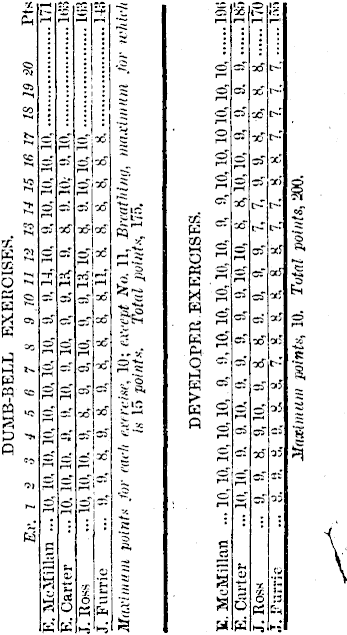 DUMB-BELL EXERCISES.
Ex. 1 2 3 4 5 6 7 8 9 10 11 12 13 14 15 16 17 18 19 20 Pts
E. McMillan ... 10, 10, 10, 10, 10, 10, 10, 10, 9, 9, 14, 10, 9, 10, 10, 10, 10, ............ 171
E. Carter ... 10, 10, 10, 9, 9, 10, 9, 10, 9, 9, 13, 9, 8, 9, 10, 9, 10, ............ 163
J. Ross ... 10, 10, 10, 9, 8, 9, 9, 10, 9, 9, 13, 10, 8, 9, 10, 10, 10, ............ 163
J. Furrie ... 9, 9, 8, 9, 8, 9, 8, 8, 8, 8, 11, 8, 8, 8, 8, 8, 8, ............ 143
Maximum points for each exercise, 10; except No. 11, Breathing, maximum for which
is 15 points. Total points, 175.
DEVELOPER EXERCISES.
E. McMillan ... 10, 10, 10, 10, 10, 10, 9, 9, 10, 10, 10, 10, 10, 9, 9, 10, 10, 10, 10, 10, ...... 196
E. Carter ... 10, 10, 9, 9, 9, 10, 9, 9, 9, 9, 10, 10, 8, 8, 10, 10, 9, 9, 9, 9, ...... 185
J. Ross ... 9, 9, 8, 9, 10, 9, 8, 8, 9, 9, 9, 9, 7, 7, 9, 9, 8, 8, 8, 8, ...... 170
J. Furrie ... 155
Maximum points, 10. Total points, 200.